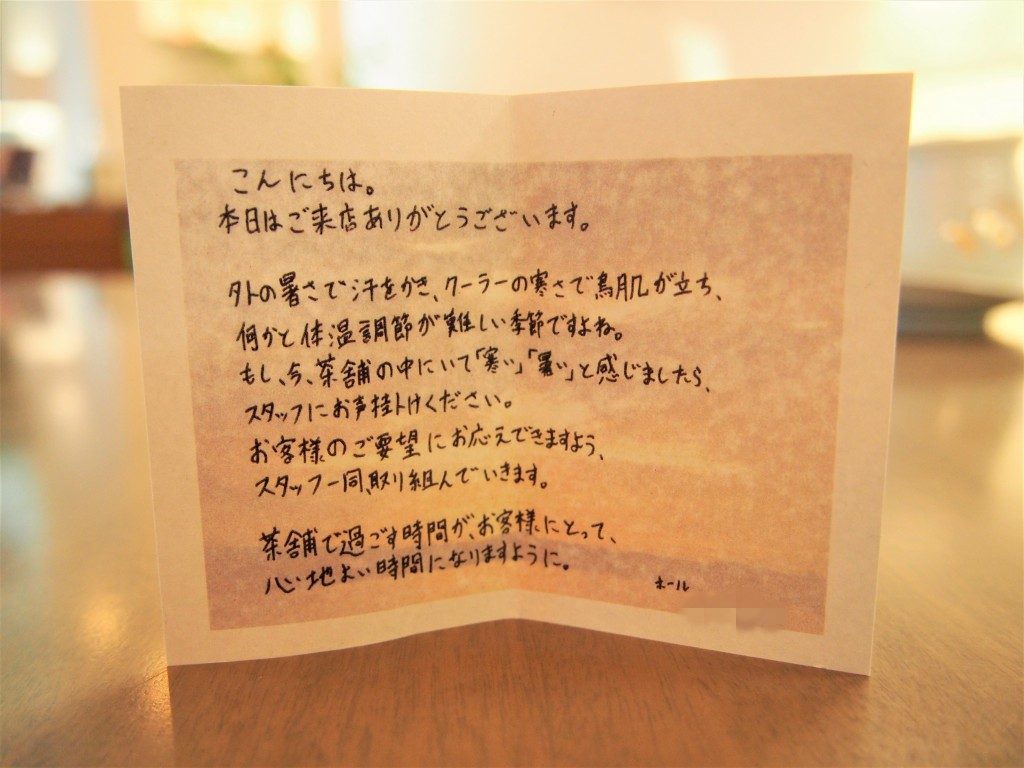 こんにちは。
本日はご来店ありがとうございます。
外の暑さで汗をかき、クーラーの寒さで鳥肌が立ち、
何かと体温調節が難しい季節ですよね。
もし、今、茶舗の中にいて「寒い」「暑い」と感じましたら、
スタッフにお声掛けください。
お客様のご要望にお応えできますよう、
スタッフ一同、取り組んでいきます。
茶舗で過ごす時間が、お客様にとって、
心地よい時間になりますように。
ホール